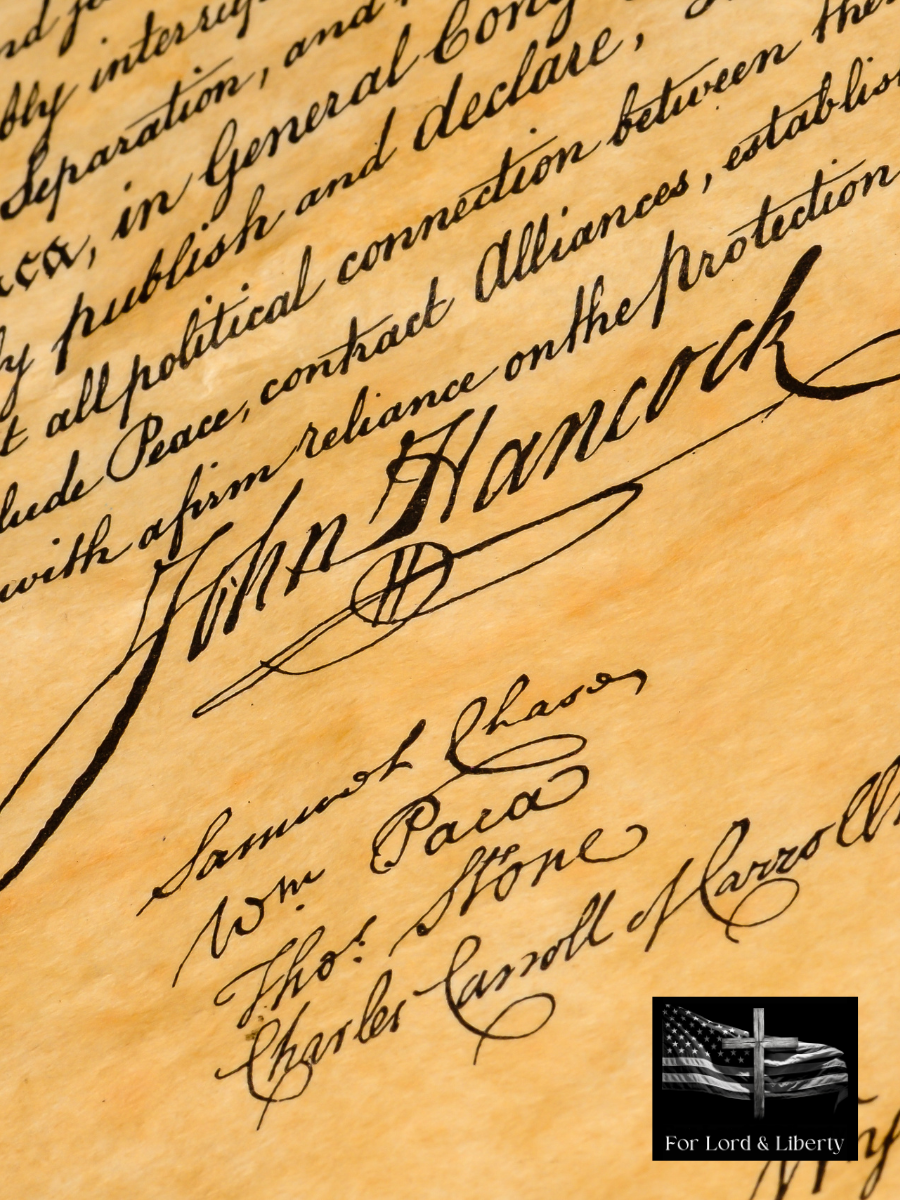 nd
bly interrup
Separation, and
ica, in General Cong
ly publish and declare,
t all political connection between the
lude Peace, contract Alliances, establis
with a firm reliance on the protection
John Hancock
Samuel Chase
Wm Paca
Thos. Stone
Charles Carroll of Carroll
For Lord & Liberty